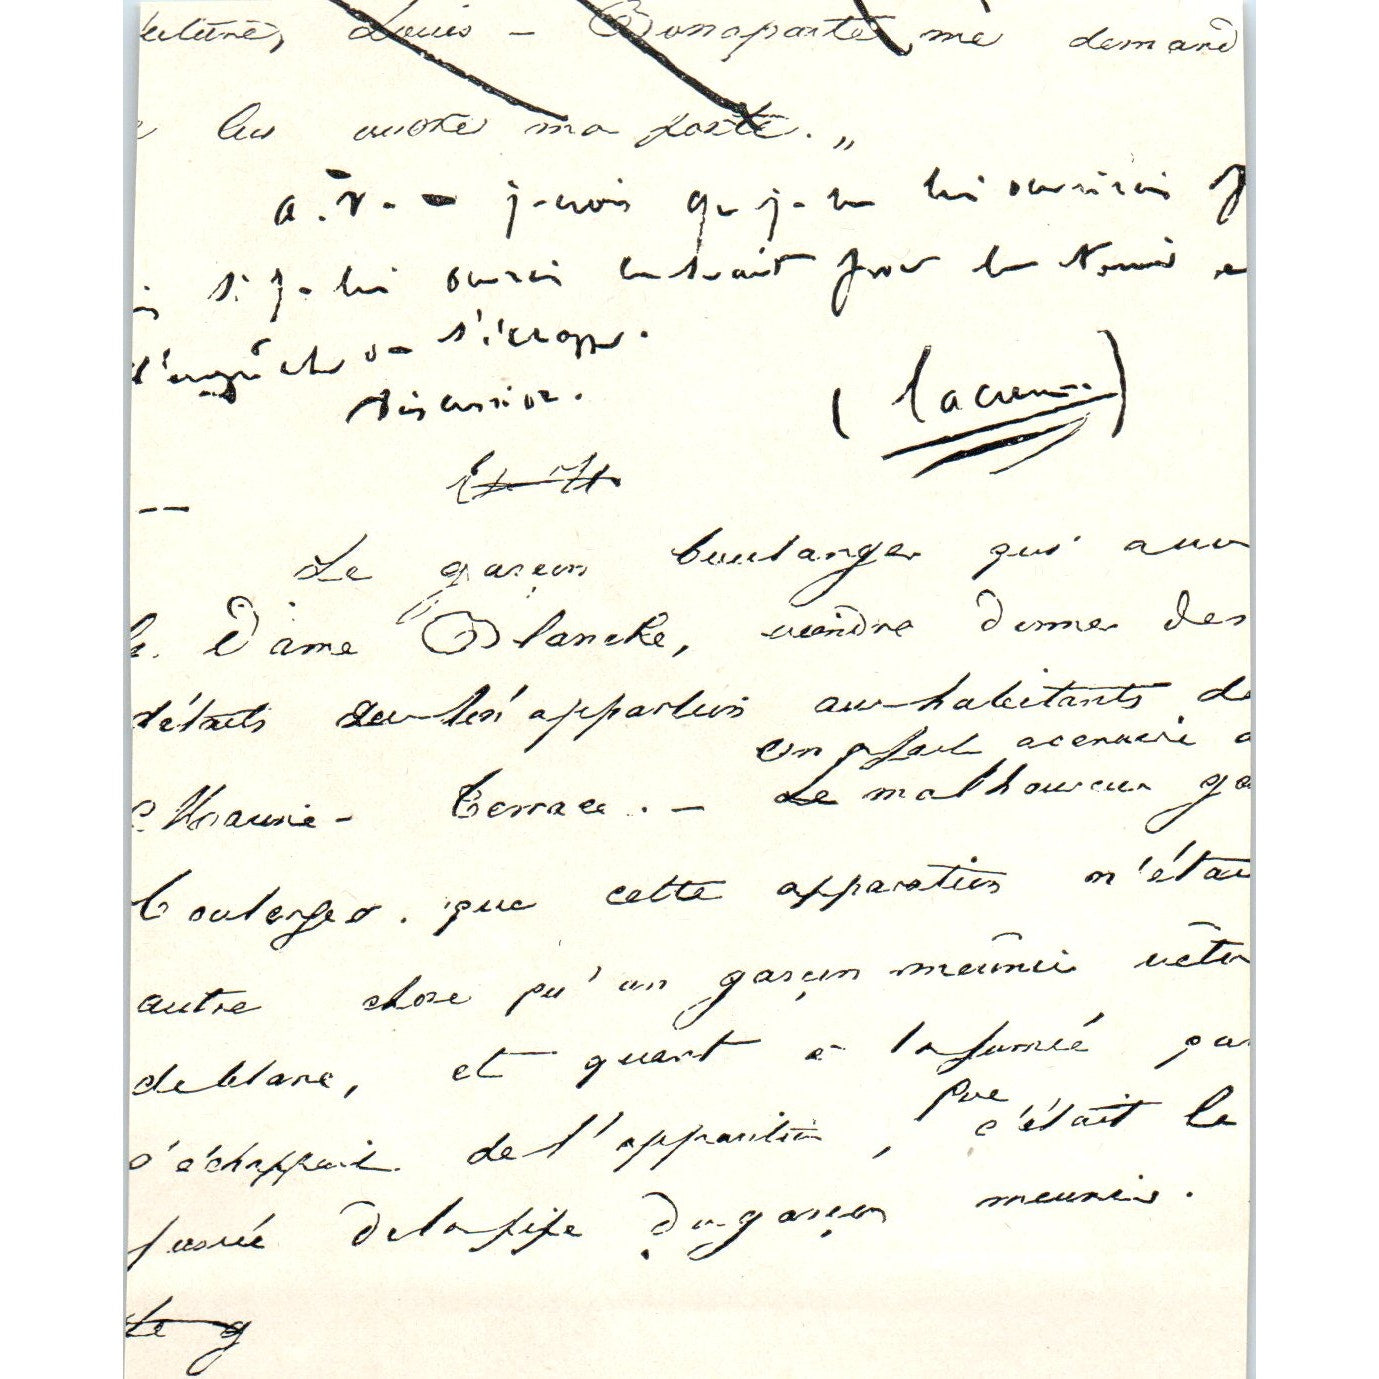 Louis - Bonaparte me demand
lui ouvre ma porte. „
A. V. - je crois que je ne lui ouvrirais
si je lui ouvrais ce serait pour le tenir
l'empêcher de s'échapper.
Discussion.
(lacune)
Le garçon boulanger qui a vu
la Dame Blanche, viendra donner des
détails sur les apparitions aux habitants de
on plait accroire a
Marine - Terrace. - Le malheureux ga
boulanger. que cette apparition n'étai
autre chose qu'un garçon meûnier vêtu
de blanc, et quant à la fumée qui
s'échappait de l'apparition, que c'était la
fumée de la pipe du garçon meunier.
Le g